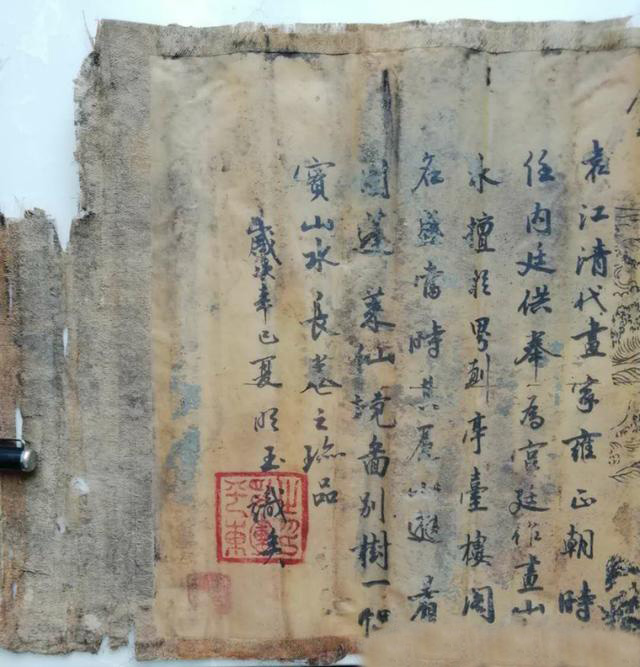 袁江清代畫家雍正朝時
任内廷供奉為宮廷作畫山
水擅於界劃亭臺樓閣
名盛當時其麗山避暑
圖蓬萊仙境圖別樹一幟
寶山水長卷之珍品
歲次辛巳夏玉識